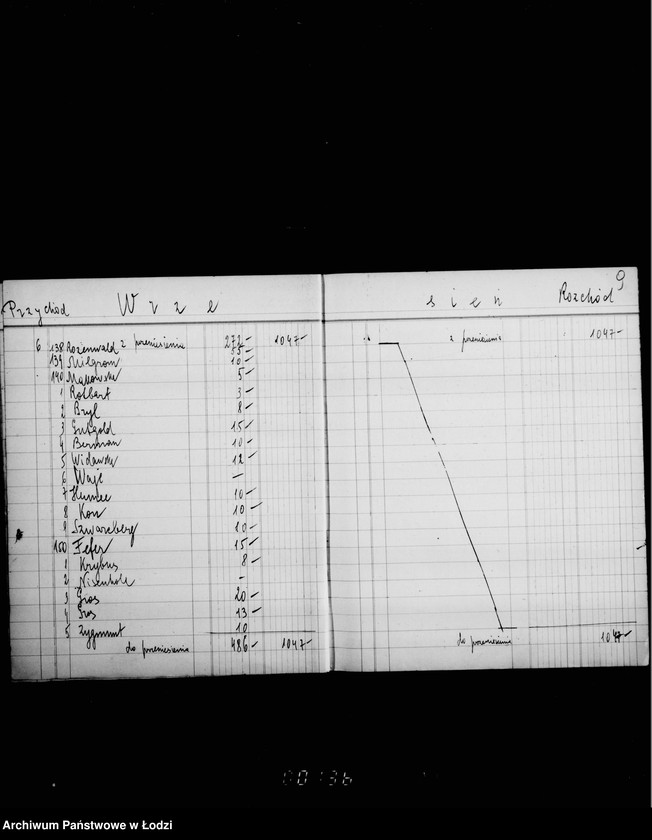 9
Przychód W r z e s i e ń Rozchód
z przeniesienia 272 1047 z przeniesienia 1047
6 138 Rozenwald 55
139 Milgrom 10
140 Makowski 5
1 Rotbart 3
2 Bryl 8
3 Gutgold 15
4 Berman 10
5 Widawski 12
6 Wajs –
7 10
8 Kon 10
9 Szwarcberg 10
150 Fefer 15
1 Krybus 8
2 –
3 Gros 20
4 Gros 13
5 Zygmunt 10
do przeniesienia 486 1047 do przeniesienia 1047
00136
Archiwum Państwowe w Łodzi